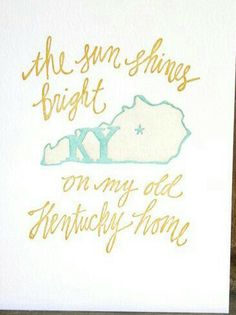 the sun shines
bright
KY
on my old
Kentucky home